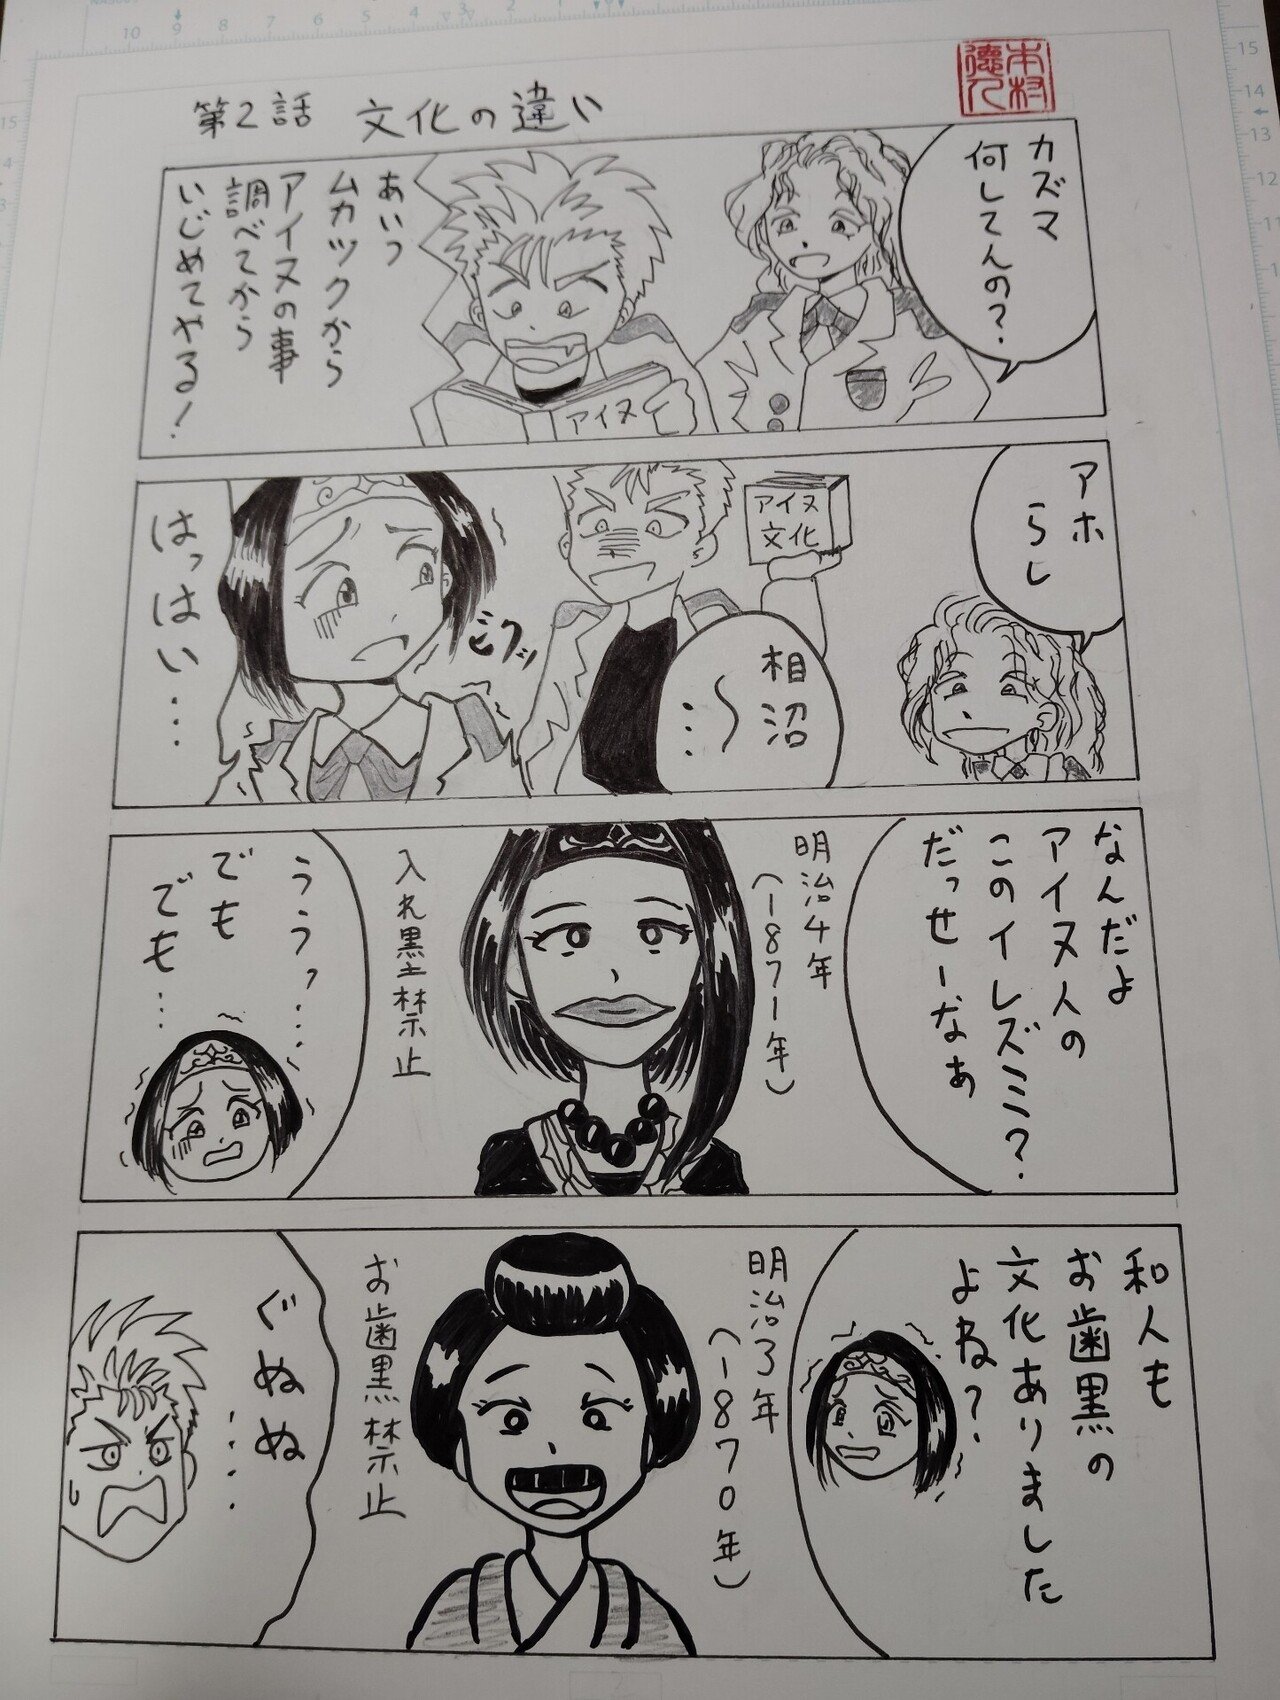 第2話 文化の違い
本村
徳人
カズマ
何してんの?
あいつ
ムカツクから
アイヌの事
調べてから
いじめてやる!
アイヌ
アホ
らし
アイヌ
文化
相沼
〜
…
ビクッ
はっはい…
なんだよ
アイヌ人の
このイレズミ?
だっせーなぁ
明治4年
(1871年)
入れ墨禁止
ううっ…
でも
でも…
和人も
お歯黒の
文化ありました
よね?
明治3年
(1870年)
お歯黒禁止
ぐぬぬ
…